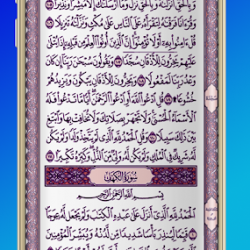 وَبِٱلْحَقِّ أَنزَلْنَٰهُ وَبِٱلْحَقِّ نَزَلَ وَمَآ أَرْسَلْنَٰكَ إِلَّا مُبَشِّرًا وَنَذِيرًا ١٠٥
وَقُرْءَانًا فَرَقْنَٰهُ لِتَقْرَأَهُۥ عَلَى ٱلنَّاسِ عَلَىٰ مُكْثٍ وَنَزَّلْنَٰهُ تَنزِيلًا ١٠٦
قُلْ ءَامِنُوا۟ بِهِۦٓ أَوْ لَا تُؤْمِنُوٓا۟ إِنَّ ٱلَّذِينَ أُوتُوا۟ ٱلْعِلْمَ مِن قَبْلِهِۦٓ إِذَا يُتْلَىٰ
عَلَيْهِمْ يَخِرُّونَ لِلْأَذْقَانِ سُجَّدًا ١٠٧ وَيَقُولُونَ سُبْحَٰنَ رَبِّنَآ إِن كَانَ
وَعْدُ رَبِّنَا لَمَفْعُولًا ١٠٨ وَيَخِرُّونَ لِلْأَذْقَانِ يَبْكُونَ وَيَزِيدُهُمْ
خُشُوعًا ١٠٩ قُلِ ٱدْعُوا۟ ٱللَّهَ أَوِ ٱدْعُوا۟ ٱلرَّحْمَٰنَ أَيًّا مَّا تَدْعُوا۟ فَلَهُ
ٱلْأَسْمَآءُ ٱلْحُسْنَىٰ وَلَا تَجْهَرْ بِصَلَاتِكَ وَلَا تُخَافِتْ بِهَا وَٱبْتَغِ
بَيْنَ ذَٰلِكَ سَبِيلًا ١١٠ وَقُلِ ٱلْحَمْدُ لِلَّهِ ٱلَّذِى لَمْ يَتَّخِذْ وَلَدًا وَلَمْ يَكُن
لَّهُۥ شَرِيكٌ فِى ٱلْمُلْكِ وَلَمْ يَكُن لَّهُۥ وَلِىٌّ مِّنَ ٱلذُّلِّ وَكَبِّرْهُ تَكْبِيرًا ١١١
سُورَةُ الكَهْفِ
بِسْمِ ٱللَّهِ ٱلرَّحْمَٰنِ ٱلرَّحِيمِ
ٱلْحَمْدُ لِلَّهِ ٱلَّذِىٓ أَنزَلَ عَلَىٰ عَبْدِهِ ٱلْكِتَٰبَ وَلَمْ يَجْعَل لَّهُۥ عِوَجَا
١ قَيِّمًا لِّيُنذِرَ بَأْسًا شَدِيدًا مِّن لَّدُنْهُ وَيُبَشِّرَ ٱلْمُؤْمِنِينَ